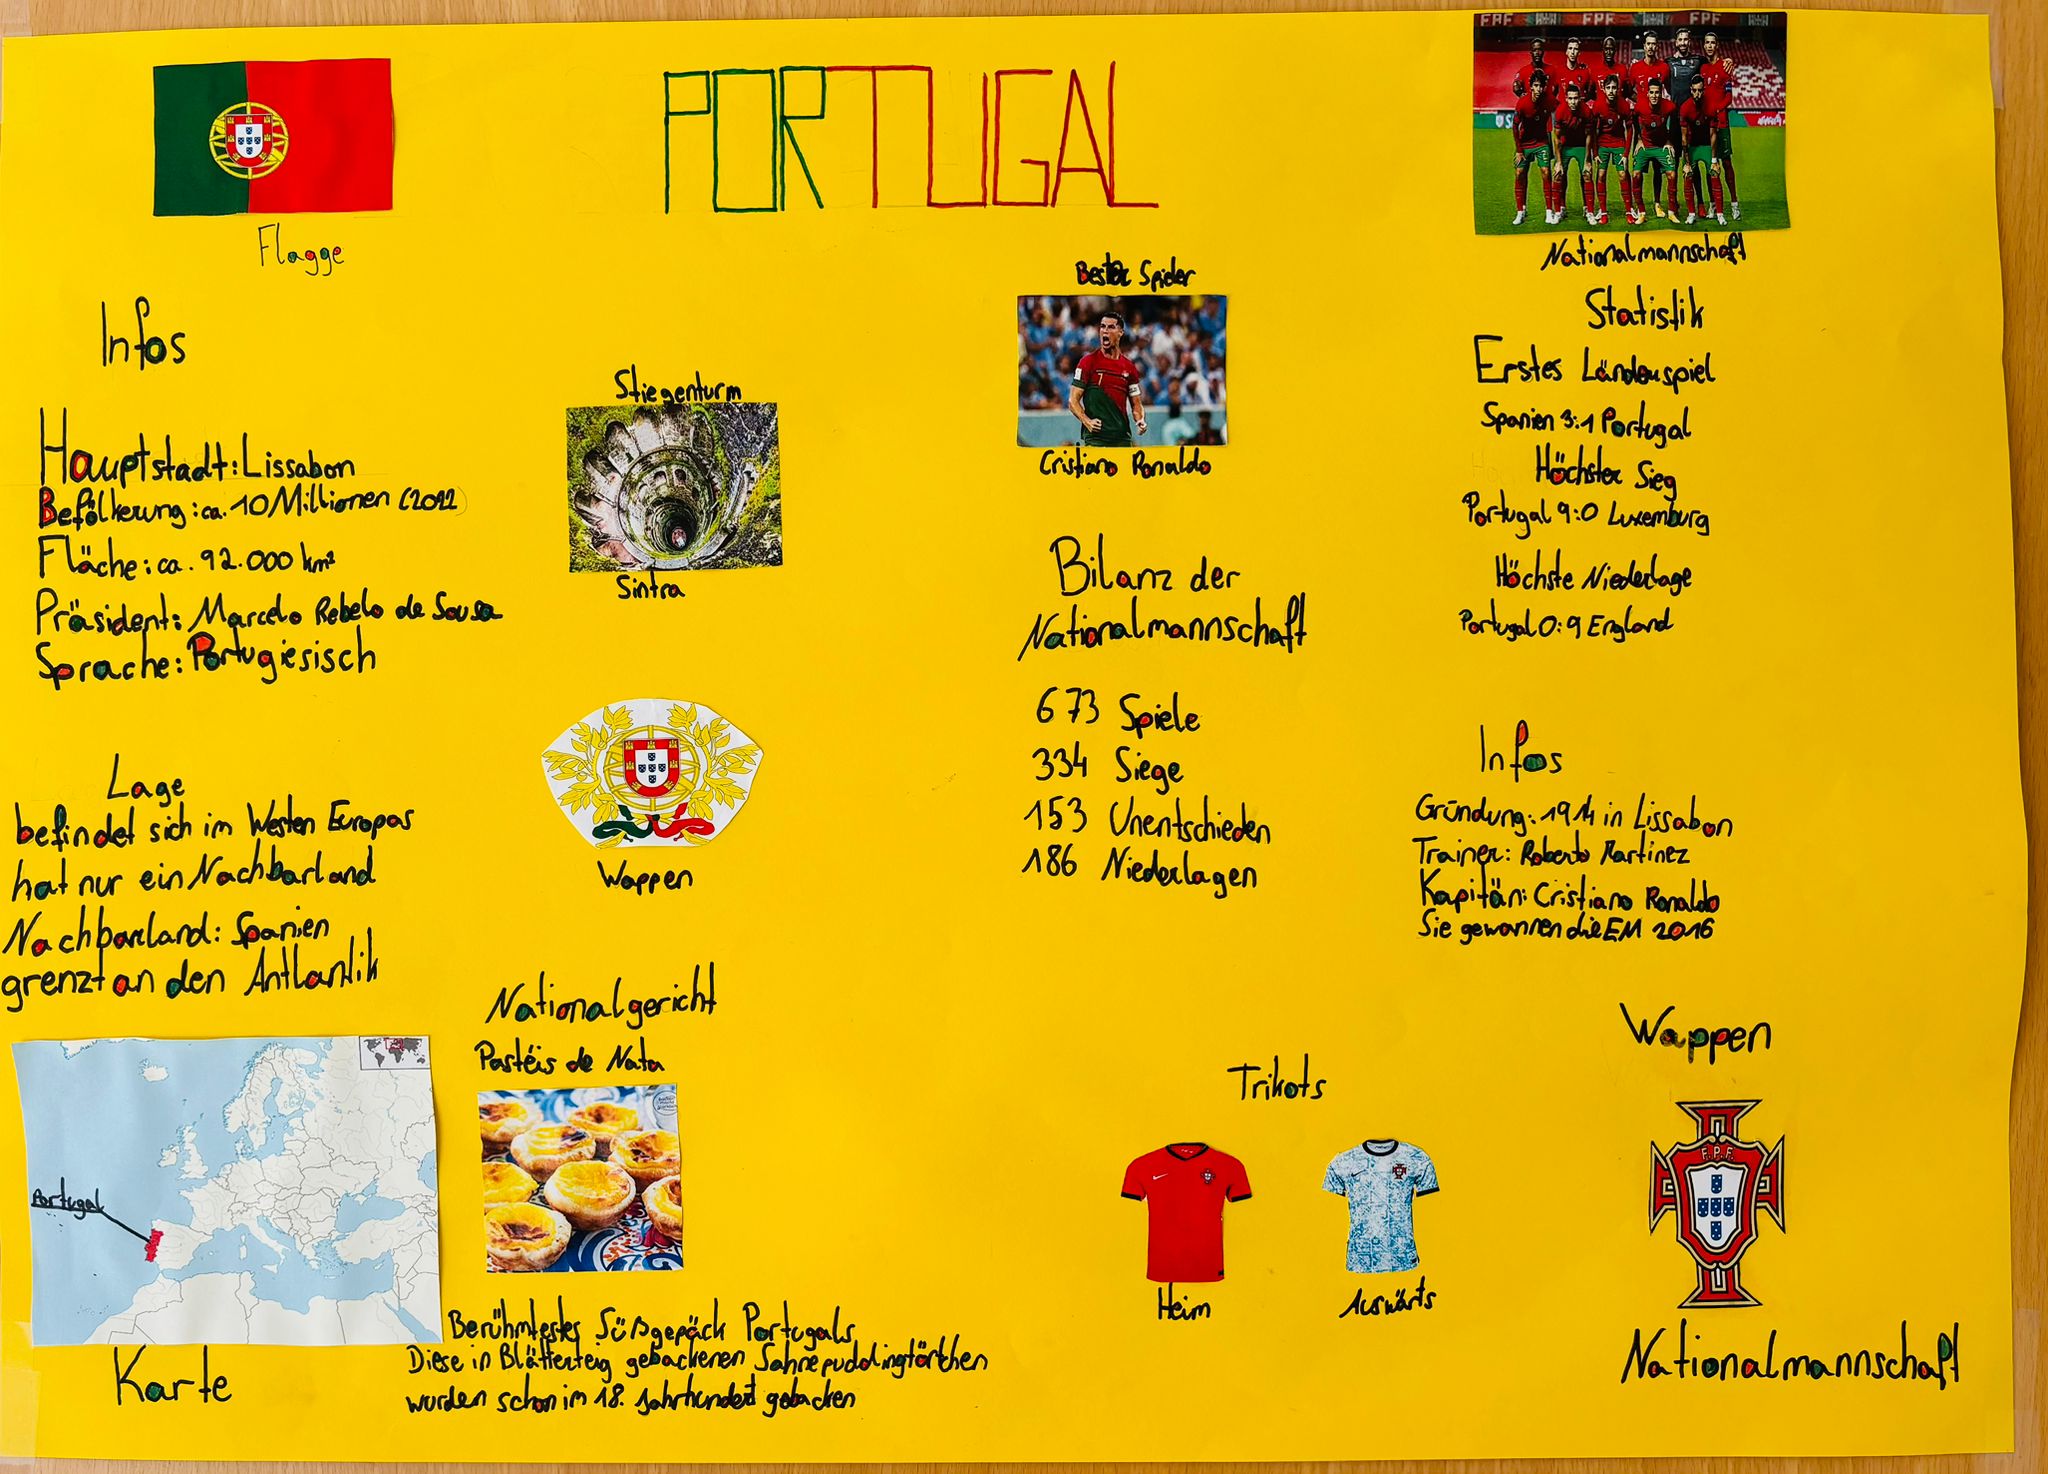 PORTUGAL
Flagge
Infos
Hauptstadt: Lissabon
Befölkerung: ca. 10 Millionen (2022)
Fläche: ca. 92.000 km²
Präsident: Marcelo Rebelo de Sousa
Sprache: Portugiesisch
Lage
befindet sich im Westen Europas
hat nur ein Nachbarland
Nachbarland: Spanien
grenzt an den Antlantik
Portugal
Karte
Stiegenturm
Sintra
Wappen
Nationalgericht
Pastéis de Nata
Berühmtestes Süßgepäck Portugals
Diese in Blätterteig gebackenen Sahnepuddingtörtchen
wurden schon im 18. Jahrhundert gebacken
Bester Spieler
7
Cristiano Ronaldo
Bilanz der
Nationalmannschaft
673 Spiele
334 Siege
153 Unentschieden
186 Niederlagen
Trikots
Heim
Auswärts
FPF FPF FPF
Nationalmannschaft
Statistik
Erstes Länderspiel
Spanien 3:1 Portugal
Höchster Sieg
Portugal 9:0 Luxemburg
Höchste Niederlage
Portugal 0:9 England
Infos
Gründung: 1914 in Lissabon
Trainer: Roberto Martinez
Kapitän: Cristiano Ronaldo
Sie gewannen die EM 2016
Wappen
F.P.F.
Nationalmannschaft